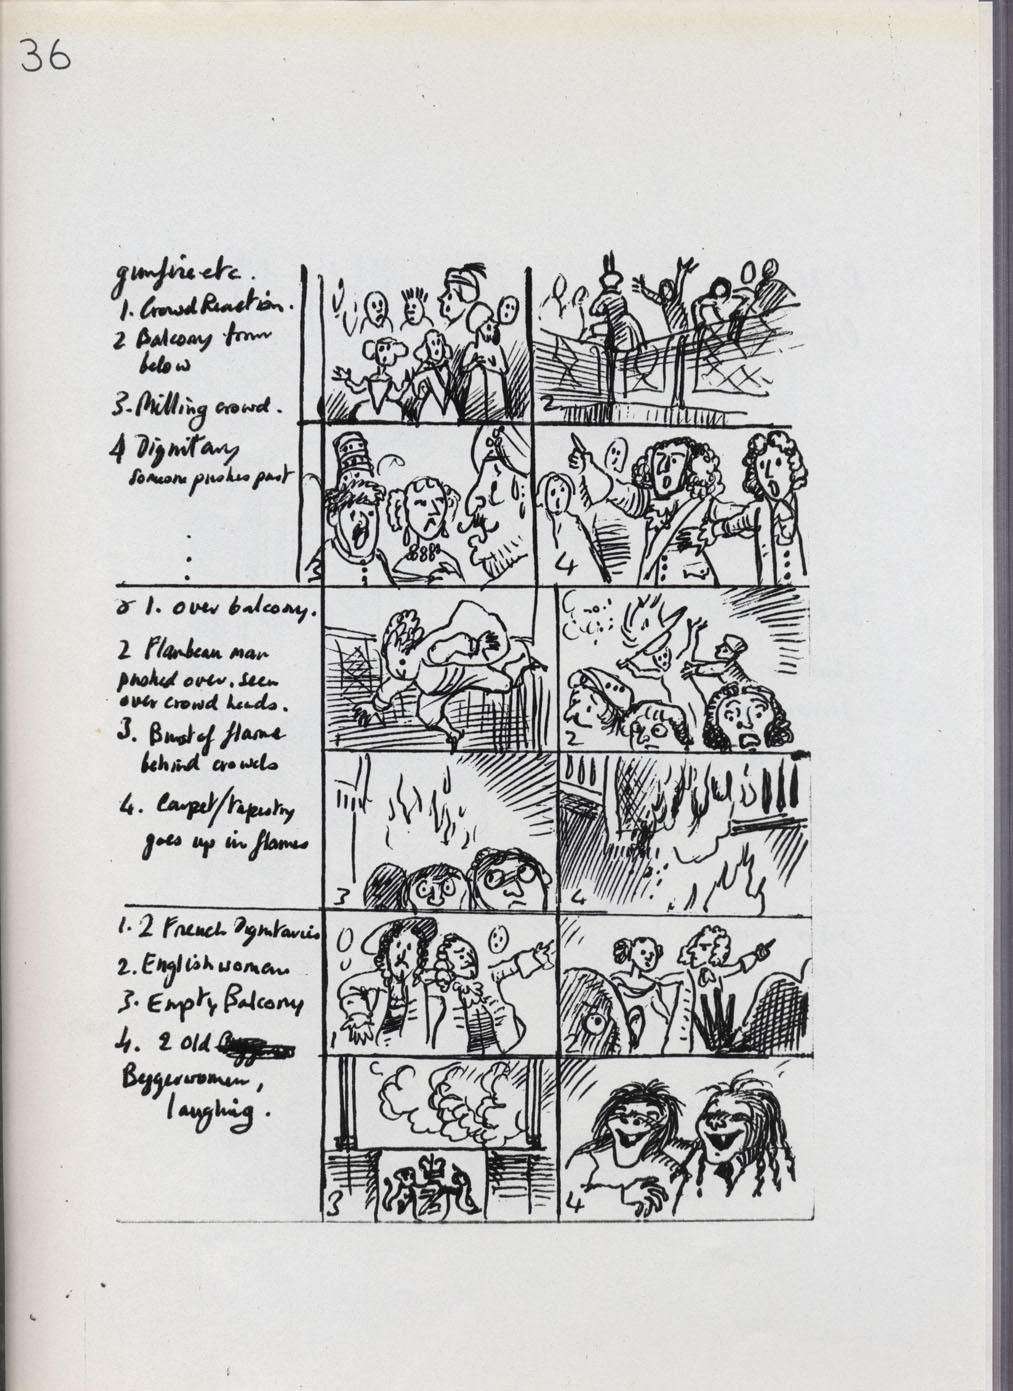 36
gunfire etc.
1. Crowd Reaction.
2 Balcony from
below
3. Milling crowd.
4 Dignitary
someone pushes past
1. over balcony.
2 Flambeau man
pushed over. seen
over crowd heads.
3. Burst of flame
behind crowds
4. Carpet/tapestry
goes up in flames
1. 2 French Dignitaries
2. English woman
3. Empty Balcony
4. 2 old
Beggarwomen,
laughing.
2
3
4
1
2
3
4
1
2
3
4